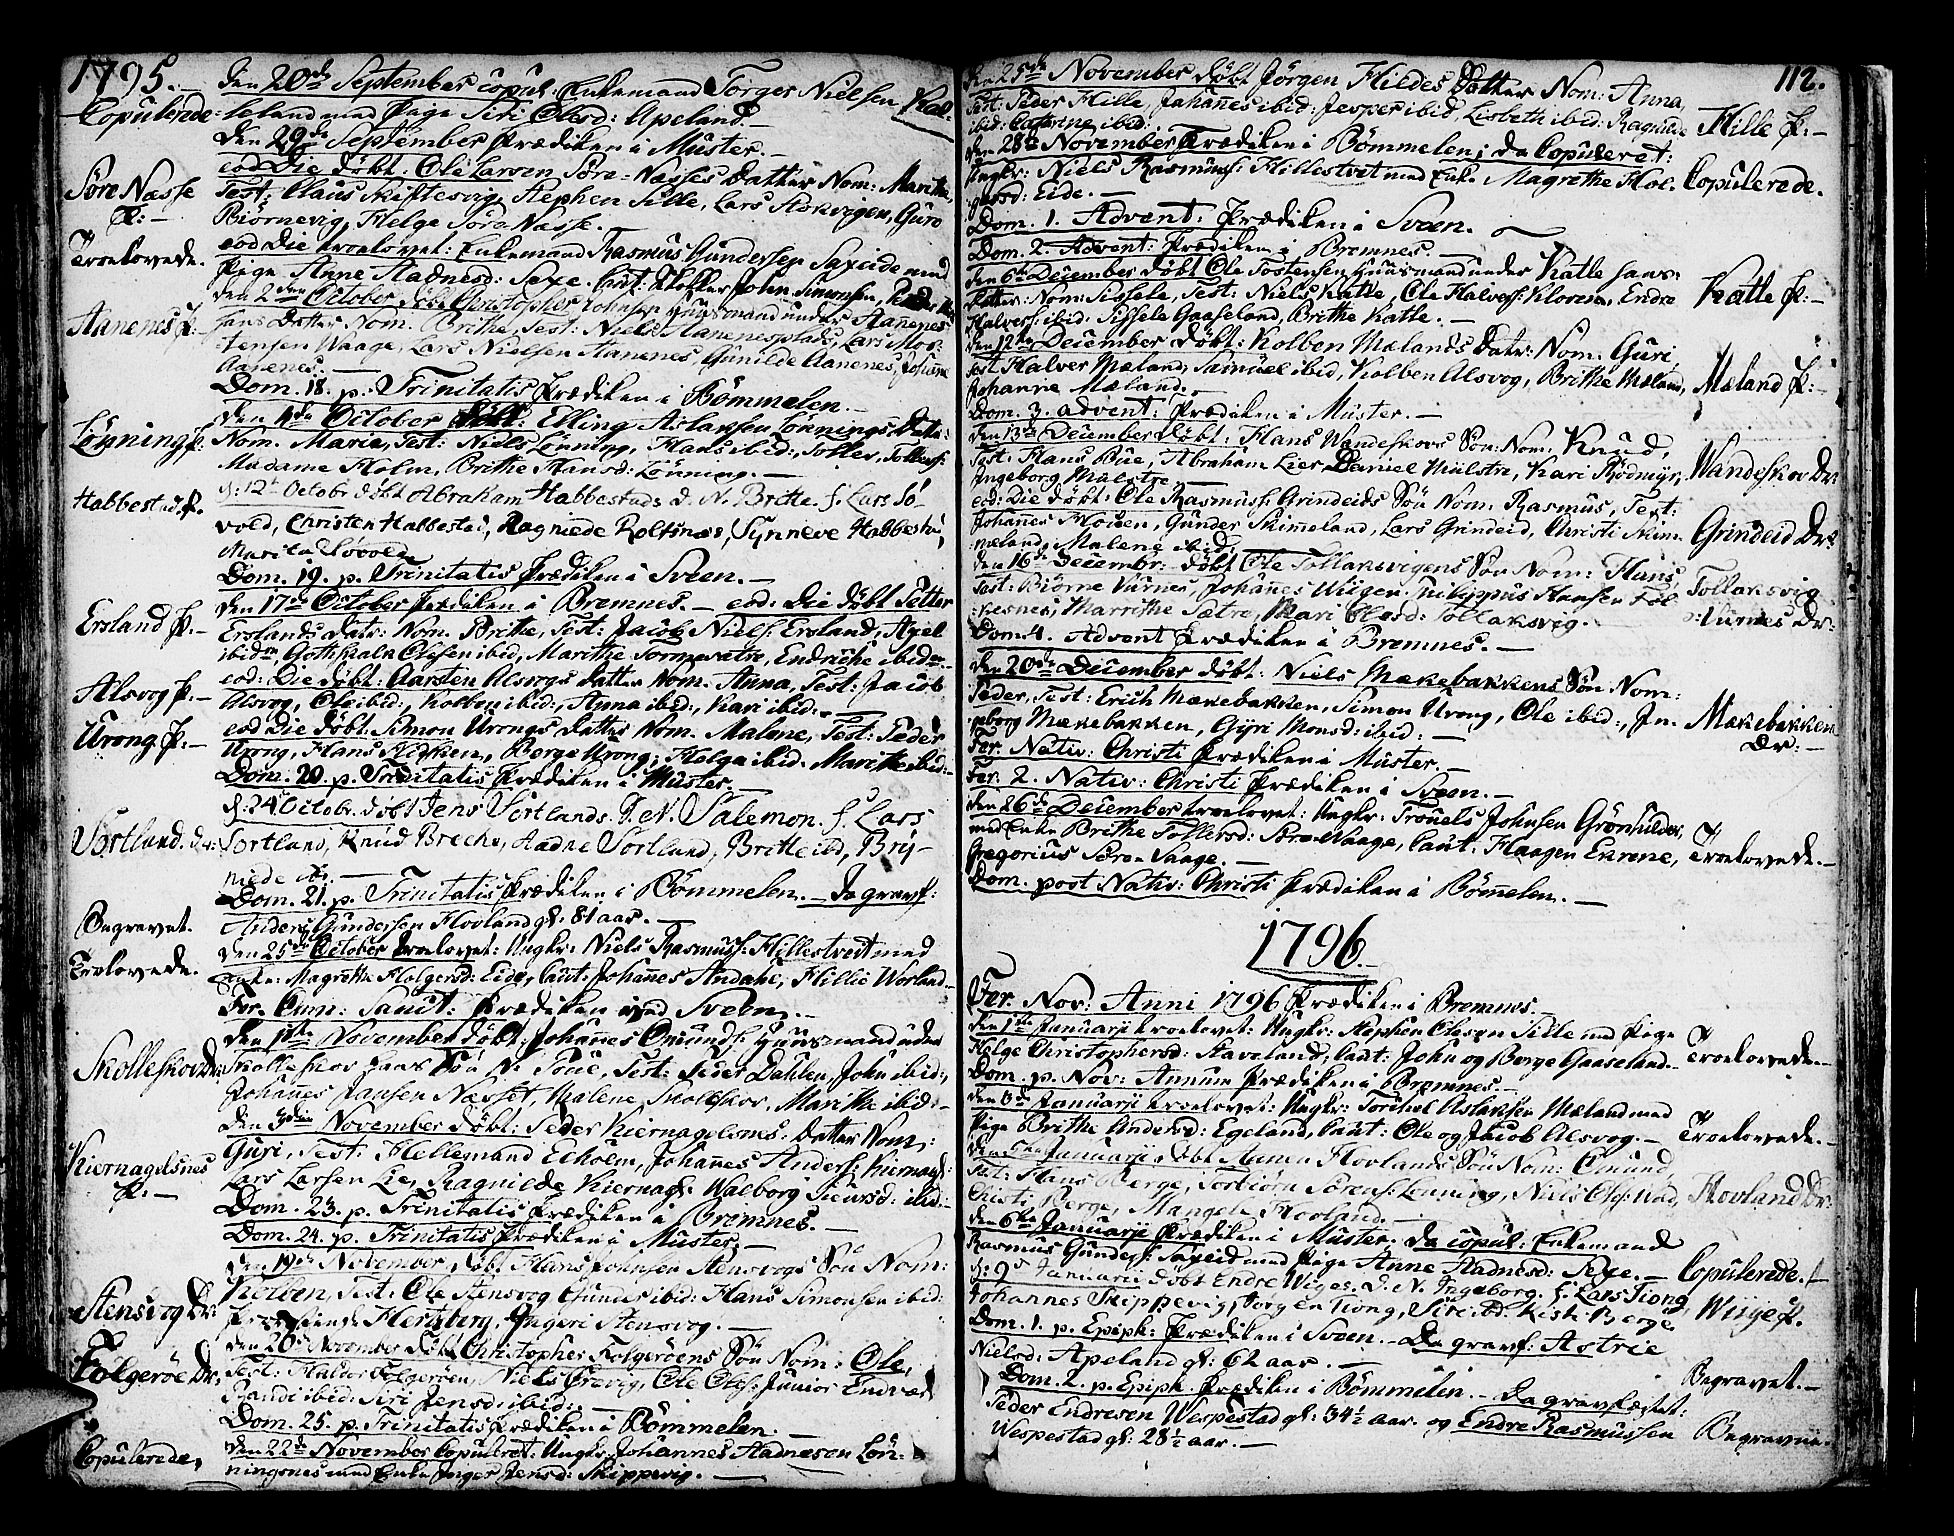 1795.
Den 20de September copul: Enkemand Torger Nielsen Kal-
Copulerede: leland med Pige Siri Olesd: Apeland.
Den 29de September Prædiken i Muster.
eod Die døbt: Ole Larsen Søre-Nasses Datter Nom: Marithe,
Søre Nasse P:
Test: Claus Skiftesvig, Stephen Sille, Lars Stokvigen, Guro
Biørnevig, Helge Søre Nasse.
Troelovede.
eod Die troelovet: Enkemand Rasmus Gundersen Saxeide med
Pige Anne Aadnesd: Sexe. Caut: Skolleh: John Simonsen,
Aanenes P:
Den 2den October døbt Christopher Johnsen Huusmand under Aanenes
hans Datter Nom. Brithe, Test: Niels Aanenesplads, Lars Mor-
tensen Waage, Lars Nielsen Aanenes, Gunilde Aanenes,
Aanenes.
Dom. 18. p. Trinitatis Prædiken i Bømmelen.
Lønning P:
Den 4de October døbt: Elling Aslaksen Lønnings Datter
Nom. Maria, Test: Niels Lønning, Hans ibid:, Tolles. Tollevs:
Madame Holm, Brithe Hansd: Lønning.
Habbestad P.
d: 12t Octobr døbt Abraham Habbestads d. N. Brithe. f. Lars Lø-
vold, Christen Habbestad, Ragniede Roltsnæs, Synneve Habbestad,
Marita Løvold
Dom. 19. p. Trinitatis Prædiken i Sveen.
Den 17de October Prædiken i Bremnes. eod: Die døbt Petter
Ersland P:
Erslands Datr: Nom. Brithe, Test: Jacob Niels: Ersland, Axel
ibidm, Gothskalk Olesen ibid, Marithe Sormesætre, Endriche ibidm
Alsvog P:
eod: Die døbt: Carsten Alsvogs Datter Nom. Anna, Test: Jacob
Alsvog, Ole ibid:, Kolben ibid:, Anna ibid:, Kari ibid:
Urong P:
eod Die døbt: Simon Urongs Datter Nom. Malene, Test: Peder
Urong, Hans Nedkven, Børge Urong, Helga ibid. Marithe ibid:
Dom. 20. p. Trinitatis Prædiken i Muster.
Vortland. dr:
d: 24t Octobr. døbt Jens Vortlands. d. N. Salemon. f. Lars
Vortland, Knud Breche, Aadne Vortland, Britte ibd, Bry-
niede ib.
Dom. 21. p. Trinitatis Prædiken i Bømmelen. Da gravf:
Begravet.
Anders Gundersen Hovland gl: 81 aar.
Troelovede.
Den 25de October troelovet: Ungkr: Niels Rasmuss: Hillestvedt med
Enke: Magrethe Holgersd: Eide, Caut: Johanes Andahl, Hillie Worland
Fer. Omn: Sanct: Prædiken ved Sveen.
Den 1ste November døbt: Johanes Omunds: Huusmand under
Skolleskov Dr:
Skolleskov hans Søn N. Toue, Test: Peder Dahlen, John ibid:,
Johanes Hansen Næsset, Malene Skolleskov. Marithe ibid:
Den 3die November døbt: Peder Kiernagelsnes. Datter Nom,:
Kiernagelsnes P:
Guri, Test: Hellemand Eeholm, Johanes Anders: Kiernagl:
Lars Larsen Lie, Ragnilde Kiernagl: Walborg Siursd: ibid:
Dom. 23. p. Trinitatis Prædiken i Bremnes.
Dom. 24. p. Trinitatis Prædiken i Muster.
Stensvog Dr:
Den 19de November døbt Hans Johnsen Stensvogs Søn Nom:
Kolben, Test: Ole Stensvog Gunder ibid: Hans Simonsen ibid:
Hertzberg. Ingeri Stensvog.
Folgerøe Dr:
Den 20de November døbt Christopher Folgerøens Søn Nom: Ole,
Test: Haldor Folgerøen, Niels Grøvig, Ole Oles: Junior Endved
Randi ibid: Siri Jensd: ibid:
Dom. 25. p. Trinitatis Prædiken i Bømmelen.
Copulerede,
Den 22de November Copuleret: Ungkr: Johannes Aadnesen Løn-
ningsnes med Enke Inger Jensd: Skippevig.
112.
Den 25de November døbt Jørgen Hildes Datter Nom: Anna,
Hille P:
Test: Peder Hille, Johanes ibid: Jesper ibid, Lisbeth ibid: Ragnilde
ibid: Catarine ibid:
Den 28de November Prædiken i Bømmelen; da Copuleret:
Copulerede.
Ungkr: Niels Rasmuss: Hillestvet med Enke. Magrethe Hol-
gersd: Eide.
Dom. 1. Advent: Prædiken i Sveen.
Dom. 2. Advent: Prædiken i Bremnes.
Katle P:
Den 6te December døbt Ole Tostensen Huusmand under Katle hans
Datter: Nom: Sissele, Test: Niels Katle, Ole Halvors: Kloven, Endre
Halvors: ibid: Sissele Gaaseland, Brithe Katle.
Den 12te December døbt: Kolben Mælands Datr: Nom. Guri,
Mæland P:
Test Halver Mæland, Samuel ibid, Kolben Alsvog, Brithe Mæland,
Johanne Mæland.
Dom. 3. advent: Prædiken i Muster.
Den 13de December døbt: Hans Wandeskovs Søn: Nom: Knud,
Wandeskov Dr:
Test: Hans Bue, Abraham Lier, Daniel Mulstre, Kari Rødmyr,
Ingeborg Mælstre.
eod: Die døbt: Ole Rasmuss: Grindeids Søn Nom. Rasmus, Test:
Grindeid Dr:
Johanes Howen, Gunder Skimeland, Lars Grindeid, Christi Skim-
meland, Malene ibid.
Den 16de Decembr: døbt Ole Tollaksvigens Søn Nom: Hans,
Tollaksvig
Test: Biørne Vurnes, Johanes Wiigen, Philippus Hansen Føl-
:Vurnes Dr:
:vesnes, Marrithe Sætre, Mari Olesd: Tollaksvig.
Dom. 4. Advent Prædiken i Bremnes.
Den 20de December døbt: Niels Mækebakkens Søn Nom:
Mækebakken Dr:
Peder, Test: Erich Mækebakken, Simon Urong, Ole ibid:, In-
geborg Mækebakken, Gyri Monsd: ibid:
Fer. Nativ: Christi Prædiken i Muster.
Fer. 2. Nativ: Christi Prædiken i Sveen.
Den 26de December troelovet: Ungkr: Trouels Johnsen Grønfulden,
Troelovede.
med Enke Brithe Tollevsd: Søre-Waage, Caut: Haagen Eerene,
Gregorius Søre-Vaage.
Dom. post Nativ: Christi Prædiken i Bømelen.
1796.
Fer. Nov: Anni 1796 Prædiken i Bremnes.
Den 1ste Januarii troelovet: Ungkr: Stephen Olesen Sille med Pige
Troelovede.
Helge Christophersd: Staveland, Caut: John og Børge Gaaseland.
Dom. p. Nov: Annum Prædiken i Bremnes.
Den 3de Januarii troelovet: Ungkr: Torchel Aslaksen Mæland med
Troelovede.
Pige Brithe Andersd: Egeland, Caut: Ole og Jacob Alsvog.
Den 5te Januarii, døbt Aamu Hovlands Søn Nom: Omund,
Hovland Dr:
Test: Hans Berge, Torbiørn Sørens: Lønning, Niels Oles: Wad,
Christi Berge, Mangele Hovland.
Den 6te Januarii Prædiken i Muster. Da copul: Enkemand
Copulerede.
Rasmus Gunders: Saxeid med Pige Anne Aadnesd: Sexe.
d: 9d Januarii døbt Endre Wiges. d. N. Ingeborg. f. Lars Tiong,
Wiige P.
Johannes Skippevig, Jørgen Tiong, Siri ibd. Kisti Berge
Dom. 1. p. Epiph: Prædiken i Sveen. Da gravf: Astrie
Begravet.
Nielsd: Apeland gl: 62 aar.
Dom. 2. p. Epiph. Prædiken i Bømmelen. Da gravfæstet:
Peder Endresen Wespestad gl: 34½ aar. og Endre Rasmussen
Begravne.
Wespestad gl: 28½ aar.